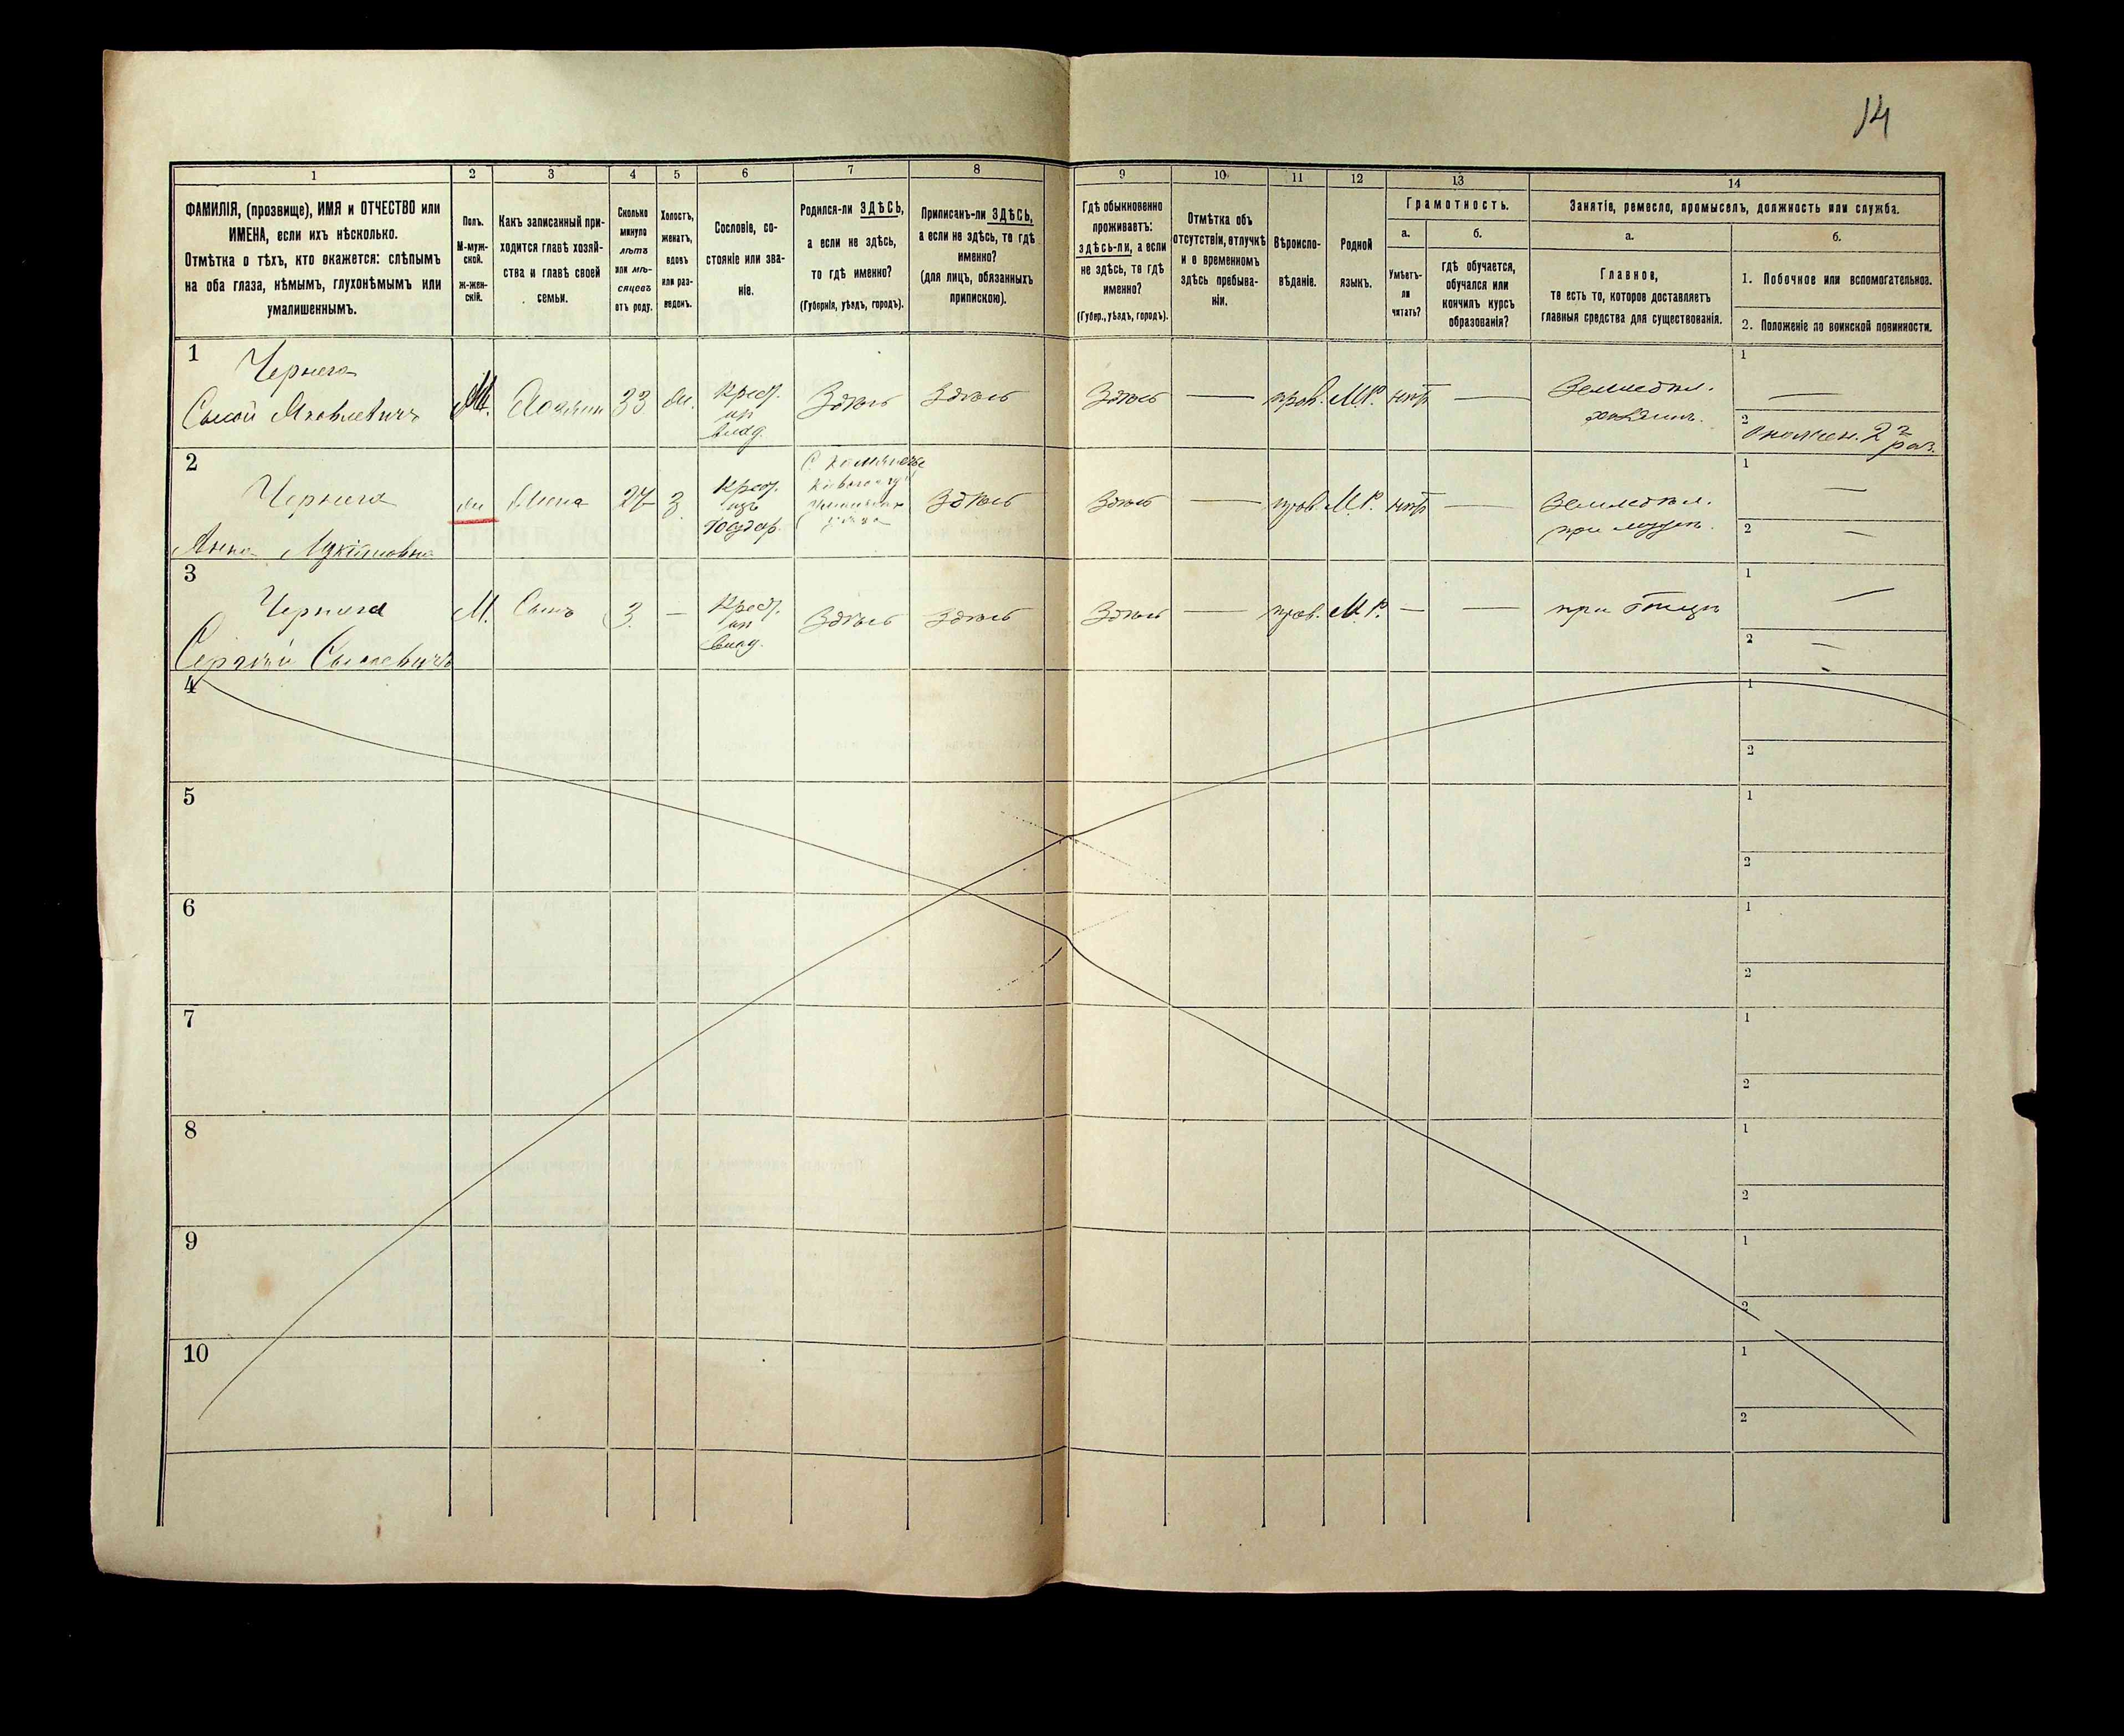 14
1 2 3 4 5 6 7 8 9 10 11 12 13 14
ФАМИЛІЯ, (прозвище), ИМЯ и ОТЧЕСТВО или
ИМЕНА, если ихъ нѣсколько.
Отмѣтка о тѣхъ, кто окажется: слѣпымъ
на оба глаза, нѣмымъ, глухонѣмымъ или
умалишеннымъ.
Полъ.
М-муж-
ской.
Ж-жен-
скій.
Какъ записанный при-
ходится главѣ хозяй-
ства и главѣ своей
семьи.
Сколько
минуло
лѣтъ
или мѣ-
сяцевъ
отъ роду.
Холостъ,
женатъ,
вдовъ
или раз-
веденъ.
Сословіе, со-
стояніе или зва-
ніе.
Родился-ли ЗДѢСЬ,
а если не здѣсь,
то гдѣ именно?
(Губернія, уѣздъ, городъ).
Приписанъ-ли ЗДѢСЬ,
а если не здѣсь, то гдѣ
именно?
(для лицъ, обязанныхъ
припискою).
Гдѣ обыкновенно
проживаетъ:
здѣсь-ли, а если
не здѣсь, то гдѣ
именно?
(Губер., уѣздъ, городъ).
Отмѣтка объ
отсутствіи, отлучкѣ
и о временномъ
здѣсь пребыва-
ніи.
Вѣроиспо-
вѣданіе.
Родной
языкъ.
Грамотность.
а.
Умѣетъ-
ли
читать?
б.
гдѣ обучается,
обучался или
кончилъ курсъ
образованія?
Занятіе, ремесло, промыселъ, должность или служба.
а.
Главное,
то есть то, которое доставляетъ
главныя средства для существованія.
б.
1. Побочное или вспомогательное.
2. Положеніе по воинской повинности.
1
Чернега
Сысой Яковлевичъ
М. Хозяинъ 33 ж.
Крест.
из
влад.
Здѣсь Здѣсь Здѣсь — прав. М.Р. нѣтъ —
Земледѣл.
хозяинъ.
1 —
2
2
Чернега
Анна
ж Жена 27 з.
Крест.
изъ
Государ.
Здѣсь Здѣсь — прав. М.Р. нѣтъ —
Земледѣл.
при мужѣ.
1 —
2 —
3
Чернега
Сергѣй Сысоевичъ
М. Сынъ 3 —
Крест.
из
влад.
Здѣсь Здѣсь Здѣсь — прав. М.Р. — —
при отцѣ
1 —
2 —
4 1
2
5 1
2
6 1
2
7 1
2
8 1
2
9 1
2
10 1
2